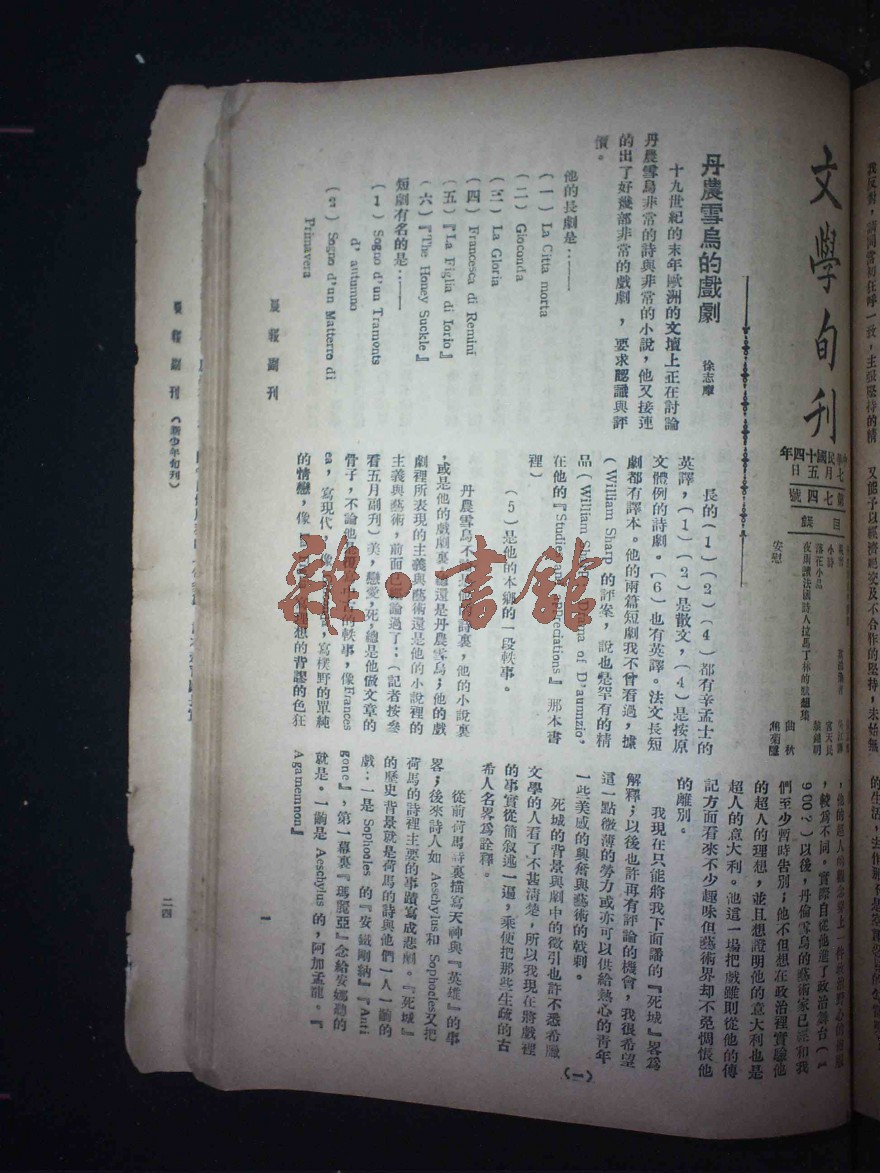 文學旬刊
中華民國十四年
七月五日
第七四號
目錄
小詩
落花小品
夜鶯讓法國詩人拉馬丁林的默想集
安慰
黎錦明
曲秋
蕉菊隱
丹農雪烏的戲劇
徐志摩
十九世紀的末年歐洲的文壇上正在討論
丹農雪烏非常的詩與非常的小說,他又接連
的出了好幾部非常的戲劇,要求認識與評
價。
他的長劇是:——
(一) La Citta morta
(二) Gioconda
(三) La Gloria
(四) Francesca di Remini
(五)『La Figlia di Iorio』
(六)『The Honey Suckle』
短劇有名的是:——
(1) Sogno d'un Tramonts
d' autumno
(2) Sogno d'un Matterro di
Primavera
長的(1)(2)(4)都有辛孟士的
英譯,(1)(2)是散文,(4)是按原
文體例的詩劇。(6)也有英譯。法文長短
劇都有譯本。他的兩篇短劇我不曾看過,據
(William Sharp 的評案,說也是罕有的精
品(William Sharp: Drama of D'aunnzio,
在他的『Studies and Appreciations』那本書
裡)
(5)是他的本鄉的一段軼事。
丹農雪烏不 是他的詩裏,他的小說裏
,或是他的戲劇裏,總還是丹農雪烏;他的戲
劇裡所表現的主義與藝術還是他的小說裡的
主義與藝術,前面 論過了;(記者按參
看五月副刊)美,戀愛,死,總是他做文章的
骨子,不論他是 的軼事,像Frances
ca,寫現代,像 ,寫樸野的單純
的情戀,像 想的背謬的色狂
,較為不同,實際自從他進了政治舞台(1
900?)以後,丹倫雪烏的藝術家已經和我
們至少暫時告別;他不但想在政治裡實驗他
的超人的理想,並且想證明他的意大利也是
超人的意大利。他這一場把戲雖則從他的傳
記方面看來不少趣味但藝術界却不免惆悵他
的離別。
我現在只能將我下面譯的『死城』畧為
解釋;以後也許再有評論的機會,我很希望
這一點微薄的勞力或亦可以供給熱心的青年
一些美感的興奮與藝術的戟刺。
死城的背景與劇中的徵引也許不悉希臘
文學的人看了不甚清楚,所以我現在將戲裡
的事實從簡叙述一遍,乘便把那些生疏的古
希人名畧為詮釋。
(一)
從前荷馬詩裏描寫天神與『英雄』的事
畧;後來詩人如 Aeschylus和 Sophocles又把
荷馬的詩裡主要的事蹟寫成悲劇。『死城』
的歷史背景就是荷馬的詩與他們一人一齣的
戲:一是 Sophocles 的『安鐵剛納』『Anti
gone』,第一幕裏『瑪麗亞』念給安娜聽的
就是。一齣是 Aeschylus 的,阿加孟龍。『
Agamemnon』
晨報副刊
一
晨報副刊
(新少年旬刊)
二四
雜·書館